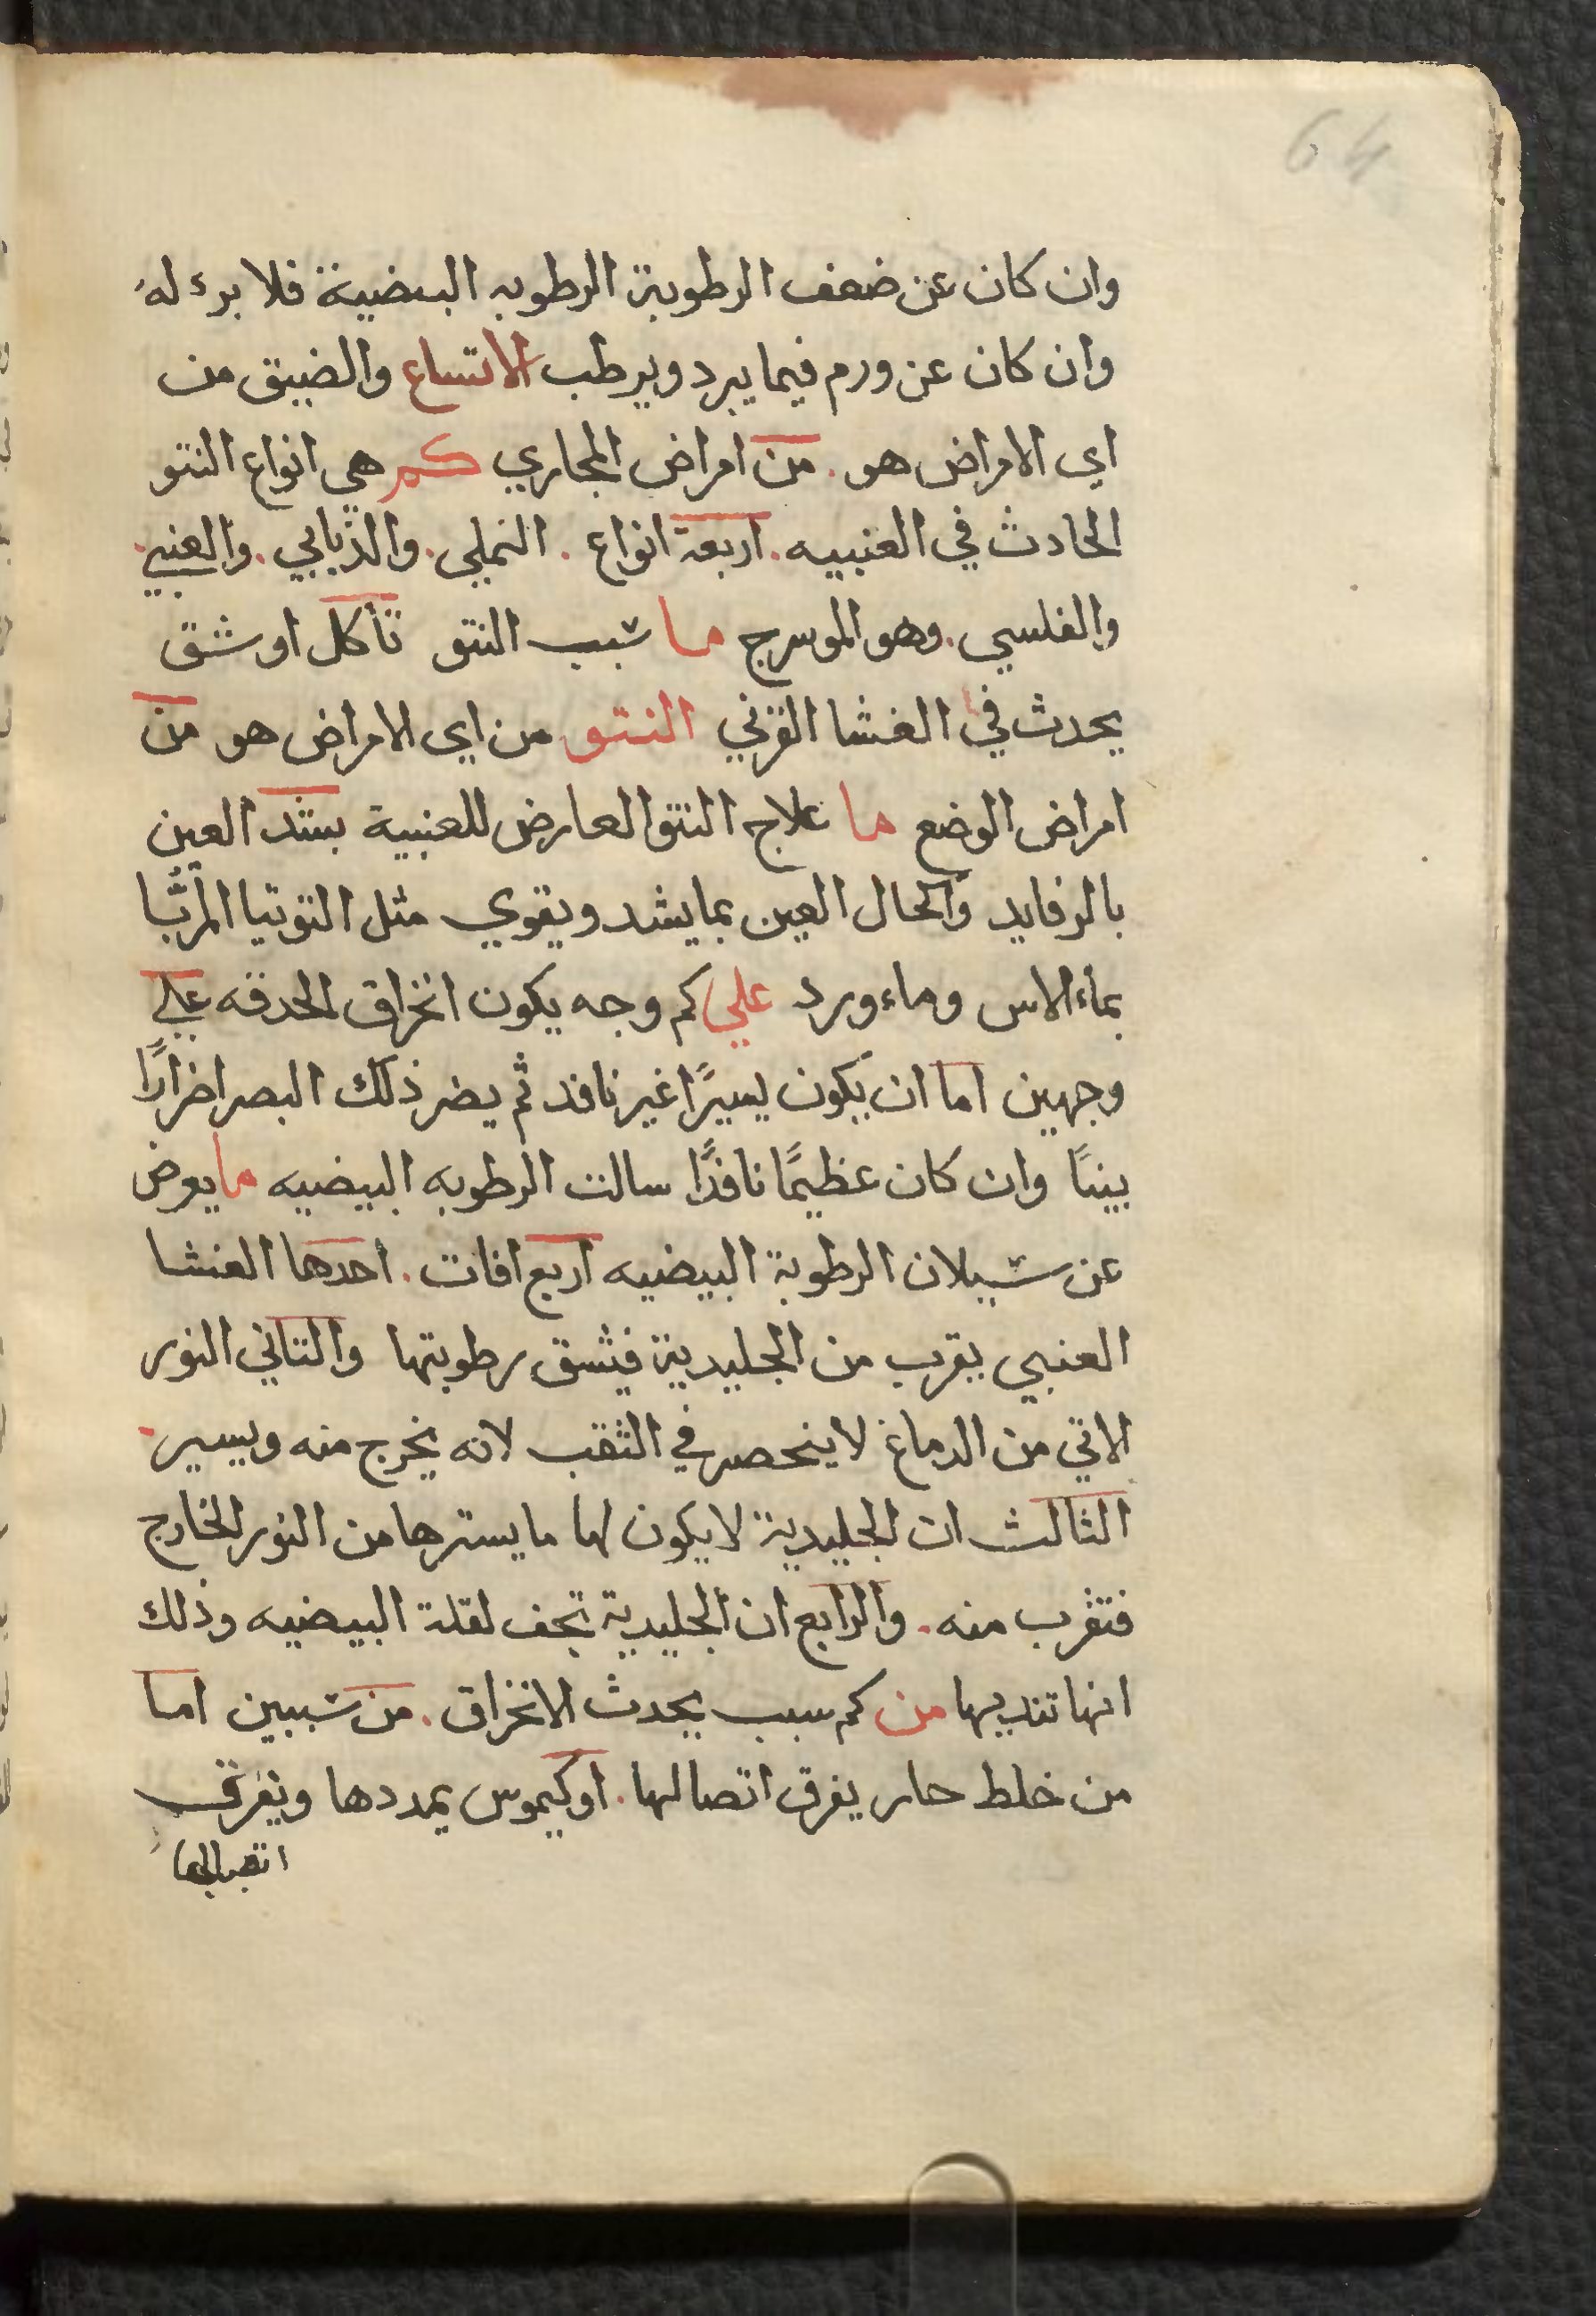 64
وان كان عن ضعف الرطوبة الرطوبه البيضية فلا برء له
وان كان عن ورم فيما يبرد ويرطب الاتساع والضيق من
اي الامراض هو . من امراض المجاري كم هي انواع النتو
الحادث في العنبيه . اربعة انواع . النملي . والذبابي . والعنبي .
والفلسي . وهو الموسرج ما سبب النتو تأكل او شق
يحدث في الغشا القرني النتو من اي الامراض هو من
امراض الوضع ما علاج النتو العارض للعنبية بشد العين
بالرفايد واكحال العين بما يشد ويقوي مثل التوتيا المربّا
بماء الاس وماء ورد علي كم وجه يكون انخراق الحدقه علي
وجهين اما ان يكون يسيرًا غير نافد ثم يضر ذلك البصر اضرارًا
بينًا وان كان عظيمًا نافذًا سالت الرطوبه البيضيه ما يعرض
عن سيلان الرطوبة البيضيه اربع افات . احدها الغشا
العنبي يقرب من الجليدية فيشق رطوبتها والتاني النور
الاتي من الدماغ لا ينحصر في الثقب لانه يخرج منه ويسير .
الثالث ان الجليدية لا يكون لها ما يسترها من النور الخارج
فتقرب منه . والرابع ان الجليدية تجف لقلة البيضيه وذلك
انها تنديها من كم سبب يحدث الانخراق . من سببين اما
من خلط حار يفرق اتصالها . او كيموس يمددها ويفرق
اتصالها